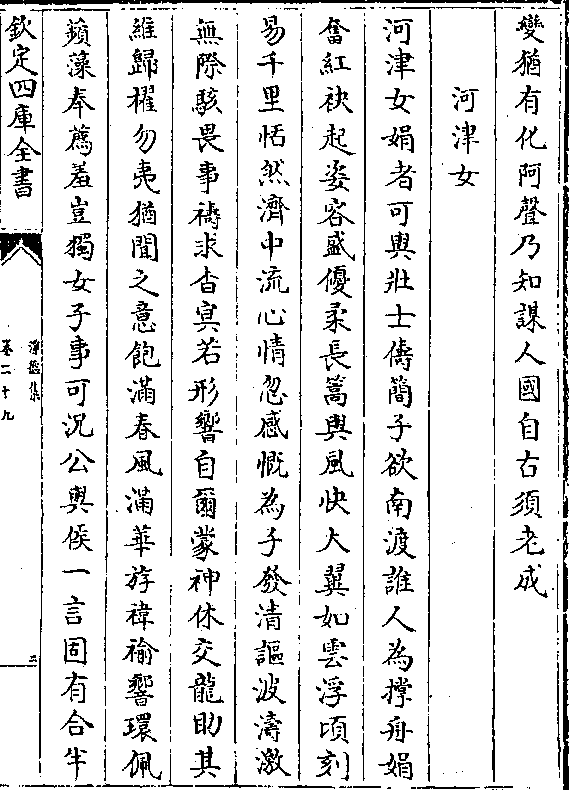 變猶有化阿聲乃知謀人國自古須老成
河津女
河津女娟者可與壯士儔簡子欲南渡誰人為撑舟娟
奮紅袂起姿容盛優柔長篙與風快大翼如雲浮頃刻
易千里恬然濟中流心情忽感慨為子發清謳波濤激
無際駭畏事禱求杳冥若形響自爾蒙神休交龍助其
維歸櫂勿夷猶聞之意飽滿春風滿華斿褘褕響環佩
蘋藻奉薦羞豈獨女子事可況公與侯一言固有合牛
欽定四庫全書
卷二十九
三